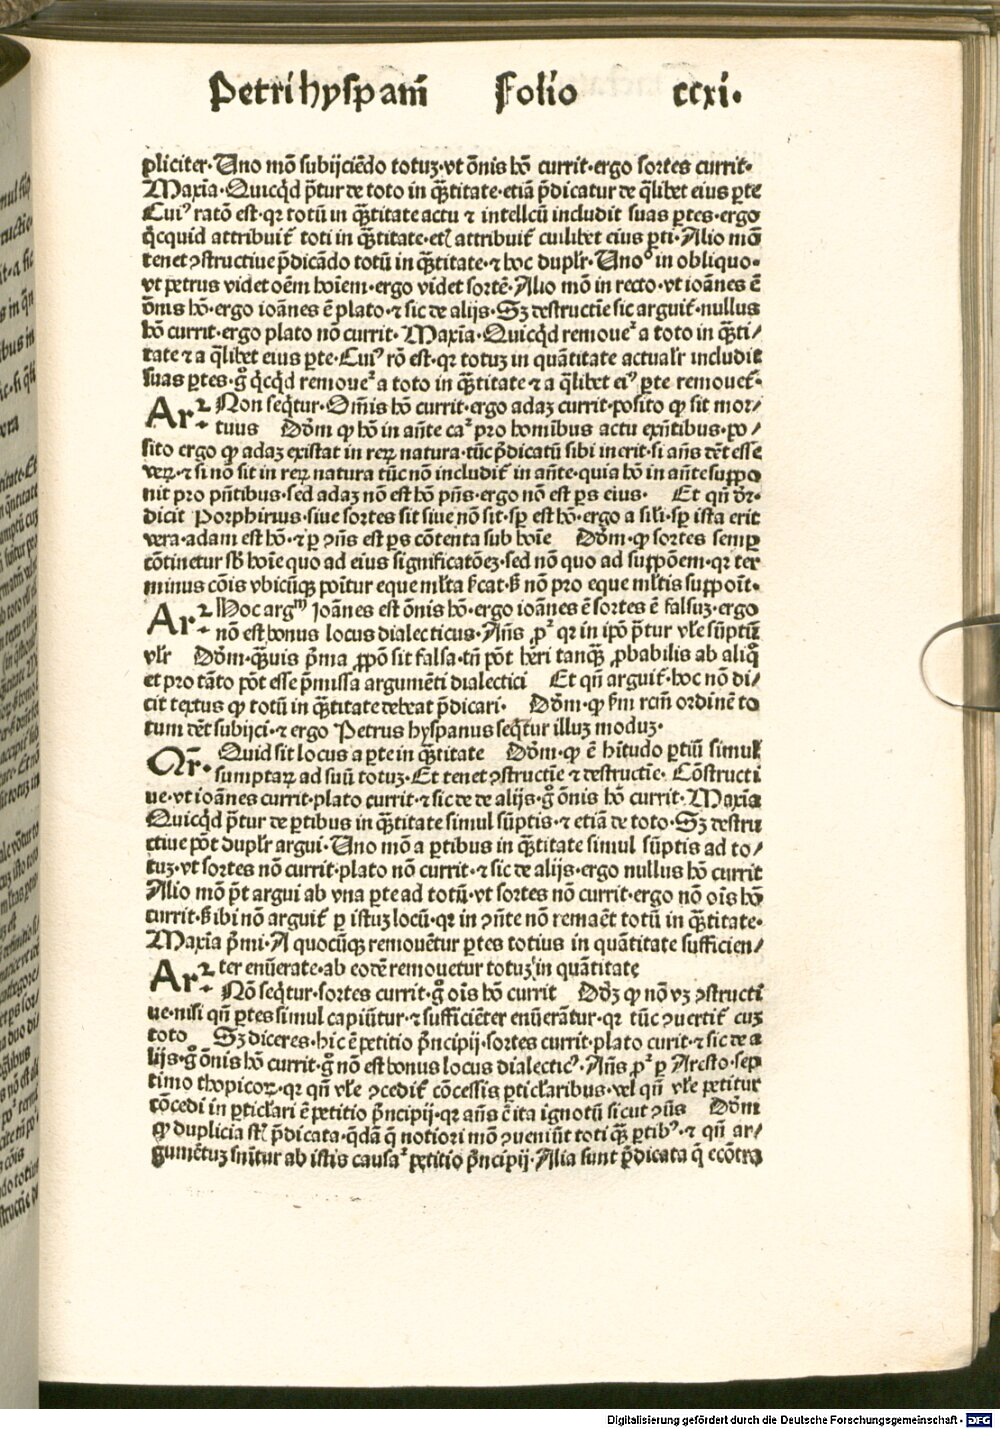 Petri hyspani Folio ccxi.
pliciter. Uno mō subijciēdo totuꝫ. vt ōnis hō currit. ergo sortes currit.
Maxīa. Quicqd p̄tur de toto in q̄titate. etiā p̄dicatur de q̄libet eius ꝑte
Cuiꝰ ratō est. qꝛ totū in q̄titate actu ⁊ intellcū includit suas ꝑtes. ergo
qcquid attribuit̄ toti in q̄titate. et̄ attribuit̄ cuilibet eius ꝑti. Alio mō
tenet ꝯstructiue p̄dicādo totū in q̄titate. ⁊ hoc duplr̄. Unoº in obliquo.
vt petrus videt oēm hoīem. ergo videt sortē. Alio mō in recto. vt ioānes ē
ōnis hō. ergo ioānes ē plato. ⁊ sic de alijs. Sꝫ destructīe sic arguit̄. nullus
hō currit. ergo plato nō currit. Maxīa. Quicqd remoueꝛ a toto in q̄ti/
tate ⁊ a q̄libet eius ꝑte. Cuiꝰ rō est. qꝛ totuꝫ in quātitate actualr̄ includit
suas ꝑtes. gͦ qcqd remoueꝛ a toto in q̄titate ⁊ a q̄libet eiꝰ ꝑte remouet̄.
Arꝛ. Non seqtur. Om̄is hō currit. ergo adaꝫ currit. posito ꝙ sit mor/
tuus Dōm ꝙ hō in an̄te caꝛ pro hominibus actu exn̄tibus. po/
sito ergo ꝙ adaꝫ existat in reꝝ natura. tūc p̄dicatū sibi inerit. si an̄s dēt esse
veꝝ. ⁊ si nō sit in reꝝ natura tūc nō includit̄ in an̄te. quia hō in an̄te suppo
nit pro pn̄tibus. sed adaꝫ nō est hō pn̄s. ergo nō est ꝑs eius. Et qn̄ dr̄.
dicit Porphirius. siue sortes sit siue nō sit. sꝑ est hō. ergo a sili. sꝑ ista erit
vera. adam est hō. ⁊ ꝑ ꝯn̄s est ꝑs cōtenta sub hoīe Dōm. ꝙ sortes semꝑ
cōtinetur sb̄ hoīe quo ad eius significatōeꝫ. sed nō quo ad suppōem. qꝛ ter
minus cōis vbicūqꝫ poītur eque ml̄ta s̄cat. sꝫ nō pro eque ml̄tis suppoīt.
Arꝛ. Hoc argᵐ ioānes est ōnis hō. ergo ioānes ē sortes ē falsuꝫ. ergo
nō est bonus locus dialecticus. An̄s pꝛ qꝛ in ip̄o p̄tur vl̄e sūptū
vlr̄ Dōm. q̄uis p̄ma ꝓpō sit falsa. tn̄ pōt heri tanq̄ ꝓbabilis ab aliq
et pro tāto pōt esse p̄missa argumēti dialectici Et qn̄ arguit̄. hoc nō di/
cit textus ꝙ totū in q̄titate debeat p̄dicari. Dōm. ꝙ s̄m rcm̄ ordinē to
tum dēt subijci. ⁊ ergo Petrus hyspanus seqtur illuꝫ moduꝫ.
Qr̄. Quid sit locus a ꝑte in q̄titate Dōm. ꝙ ē hītudo ꝑtiū simul
sumptaꝝ ad suū totuꝫ. Et tenet ꝯstructīe ⁊ destructīe. Cōstructi
ue. vt ioānes currit. plato currit. ⁊ sic de de alijs. gͦ ōnis hō currit. Maxīa
Quicqd p̄tur de ꝑtibus in q̄titate simul sūptis. ⁊ etiā de toto. Sꝫ destru
ctiue pōt duplr̄ argui. Uno mō a ꝑtibus in q̄titate simul sūptis ad to/
tuꝫ. vt sortes nō currit. plato nō currit. ⁊ sic de alijs. ergo nullus hō currit
Alio mō pt̄ argui ab vna ꝑte ad totū. vt sortes nō currit. ergo nō oīs hō
currit. sꝫ ibi nō arguit̄ ꝑ istuꝫ locū. qꝛ in ꝯn̄te nō remaēt totū in q̄titate.
Maxīa p̄mi. A quocūqꝫ remouētur ꝑtes totius in quātitate sufficien/
ter enūerate. ab eodē remouetur totuꝫ in quātitate
Arꝛ. Nō seqtur. sortes currit. gͦ oīs hō currit Dōꝫ ꝙ nō vꝫ ꝯstructi
ue. nisi qn̄ ꝑtes simul capiūtur. ⁊ sufficiēter enūerātur. qꝛ tūc ꝯuertit̄ cuꝫ
toto Sꝫ diceres. hic ē petitio p̄ncipij. sortes currit. plato curit. ⁊ sic de a
lijs. gͦ ōnis hō currit. gͦ nō est bonus locus dialecticꝰ. An̄s pꝛ ꝑ Aresto. sep
timo thopicoꝝ. qꝛ qn̄ vl̄e ꝯcedit̄ cōcessis ꝑticl̄aribus. vel qn̄ vl̄e petitur
cōcedi in ꝑticl̄ari ē petitio p̄ncipij. qꝛ an̄s ē ita ignotū sicut ꝯn̄s Dōm
ꝙ duplicia st̄ p̄dicata. qdā q̄ notiori mō ꝯueniūt toti q̄ ꝑtibꝰ. ⁊ qn̄ ar/
gumētuꝫ sumitur ab istis causaꝛ petitio p̄ncipij. Alia sunt p̄dicata q̄ ecōtra
Digitalisierung gefördert durch die Deutsche Forschungsgemeinschaft - DFG